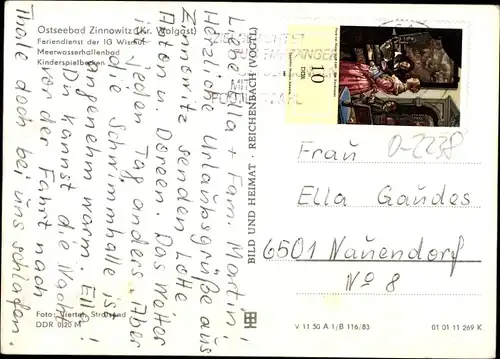 Ostseebad Zinnowitz (Kr. Wolgast)
Feriendienst der IG Wismut
Meerwasserhallenbad
Kinderspielbecken
Liebe Ella + Fam. Martin!
Herzliche Urlaubsgrüße aus
Zinnowitz senden Lotte
Anton u. Doreen. Das Wetter
ist jeden Tag anders. Aber
die Schwimmhalle ist
angenehm warm. Ella!
Du kannst die Nacht
vor der Fahrt nach
Thale doch bei uns schlafen.
Foto: Stralsund
DDR 0,20 M
BILD UND HEIMAT REICHENBACH (VOGTL)
MIT
10
DDR
0-2238
Frau
Ella Gaudes
6501 Nauendorf
No 8
V 11 50 A 1/B 116/83
01 01 11 269 K